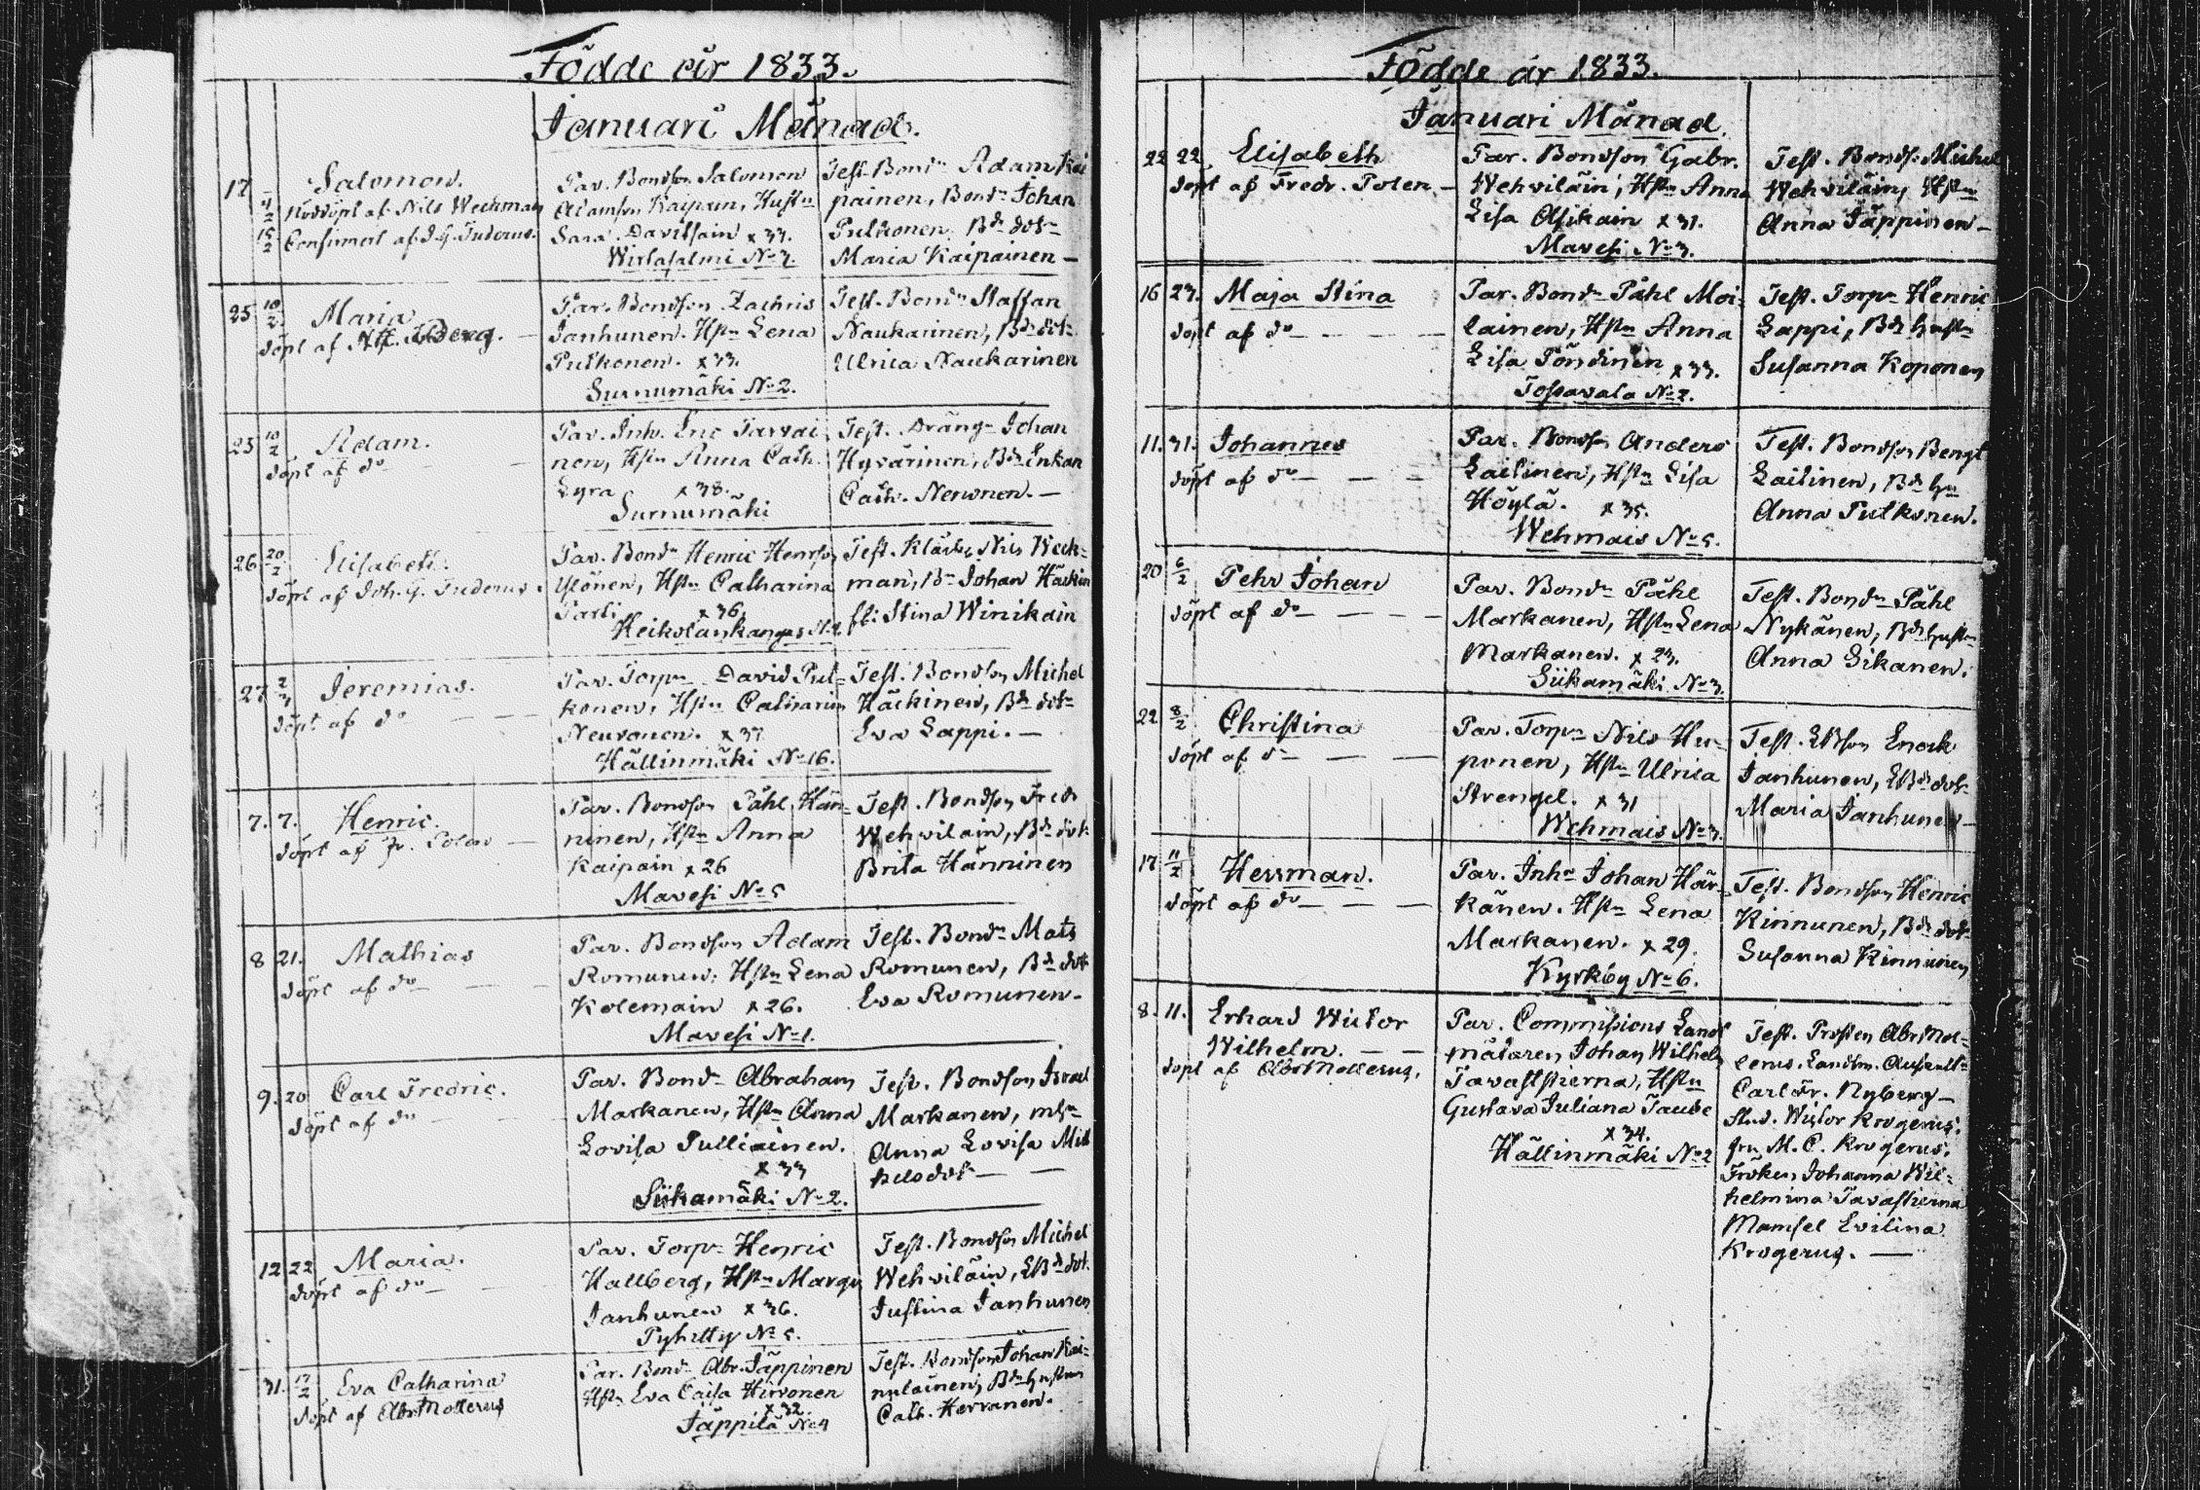 Födde år 1833.
Januari Månad.
17 4/2 15/2
Salomon.
Nöddöpt af Nils Weckman
Confirmert af J. G. Tuderus.
Par. Bondson Salomon
Adamson Kaipain, Hustn
Sara Davitsain x 33.
Wirtasalmi No 7.
Test. Bondn Adam Kai
painen, Bondn Johan
Pulkonen, Bd dotr
Maria Kaipainen —
25 10/2
Maria
döpt af Berg.
Par. Bondson Zachris
Janhunen, Hstn Lena
Pulkonen. x 33.
Surnumäki No 2.
Test. Bondn Staffan
Naukarinen, Bd dotr
Ulrica Naukarinen
25 10/2
Adam.
döpt af do
Par. Inh. Eric Tarvai
nen, Hstn Anna Cath.
Lyra x 38.
Surnumäki
Test. Dräng Johan
Hyvärinen, Bd Enkan
Cath. Nenonen. —
26 20/2
Elisabeth.
döpt af Joh. G. Tuderus.
Par. Bondn Henric Henrson
Ylönen, Hstn Catharina
Partti x 36.
Keikolankangas No 2.
Test. Klåck. Nils Weck-
man, Bn Johan Häckin
fl. Stina Winikain
27 2/3
Jeremias.
döpt af do
Par. Torpn David Pul-
konen, Hstn Catharina
Neuvonen. x 37
Hällinmäki No 16.
Test. Bondson Michel
Häckinen, Bd dotr
Eva Lappi. —
7. 7.
Henric.
döpt af Fr. Polen —
Par. Bondson Påhl Hän-
ninen, Hstn Anna
Kaipain x 26
Mavesi No 5
Test. Bondson Fredr
Wehvilain, Bd dotr
Brita Hänninen
8 21.
Mathias
döpt af do
Par. Bondson Adam
Romunen, Hstn Lena
Kolemain x 26.
Mavesi No 1.
Test. Bondn Mats
Romunen, Bd dotr
Eva Romunen -
9. 20
Carl Fredric.
döpt af do
Par. Bondn Abraham
Markanen, Hstn Anna
Lovisa Pulliainen.
x 33
Siikamäki No 2.
Test. Bondson Israel
Markanen, mhn
Anna Lovisa Mik
helsdotr —
12 22
Maria.
döpt af do —
Par. Torpn Henric
Hallberg, Hstn Margr
Janhunen x 36.
Pyhitty No 5.
Test. Bondson Michel
Wehviläin, EBd dotr
Justina Janhunen
31. 17/2
Eva Catharina
döpt af Abr Mollerus
Par. Bondn Abr. Jäppinen
Hstn Eva Caisa Hirvonen
x 32.
Jäppilä No 4
Test. Bondson Johan Kai-
nulainen, Bd hustrun
Cath. Herranen.
Födde år 1833.
Januari Månad.
22 22.
Elisabeth
döpt af Fredr. Polen —
Par. Bondson Gabr.
Wehviläin, Hstn Anna
Lisa Asikain x 31.
Mavesi No 3.
Test. Bonds. Michel
Wehviläin, Hstn
Anna Jäppinen —
16 23.
Maja Stina
döpt af do — —
Par. Bondn Påhl Moi-
lainen, Hstn Anna
Lisa Pöndinen x 33.
Tossavala No 2.
Test. Torpn Henric
Lappi, Bd hustn
Susanna Koponen
11. 31.
Johannes
döpt af do — — —
Par. Bondson Anders
Laitinen, Hstn Lisa
Höylä. x 35.
Wehmais No 5.
Test. Bondson Bengt
Laitinen, Bd hu
Anna Pulkonen.
20 6/2
Pehr Johan
döpt af do — — —
Par. Bondn Påhl
Markanen, Hstn Lena
Markanen. x 23.
Siikamäki No 3.
Test. Bondn Påhl
Nykänen, Bd hustn
Anna Sikanen.
22 8/2
Christina
döpt af do — — —
Par. Torpn Nils Hu-
ponen, Hstn Ulrica
Strengel. x 31
Wehmais No 3.
Test. EBson Enock
Janhunen, EBd dotr
Maria Janhunen —
17 11/2
Herrman.
döpt af do — — —
Par. Inhn Johan Här-
känen. Hstn Lena
Markanen. x 29.
Kyrkoby No 6.
Test. Bondson Henric
Kinnunen, Bd dotr
Susanna Kinnunen
8. 11.
Erhard Wictor
Wilhelm. — —
döpt af Abr Mollerus.
Par. Commissions Landt
mätaren Johan Wilhelm
Tavaststierna, Hstn
Gustava Juliana Taube
x 34.
Hällinmäki No 2
Test. Prosten Abr Mol-
lerus. Landtm. Auscult-
Carl Fr. Nyberg —
Stud. Wictor Krogerus.
fru M. C. Krogerus.
Fröken Johanna Wil-
helmina Tavastierna
Mamsel Evilina
Krogerus. —